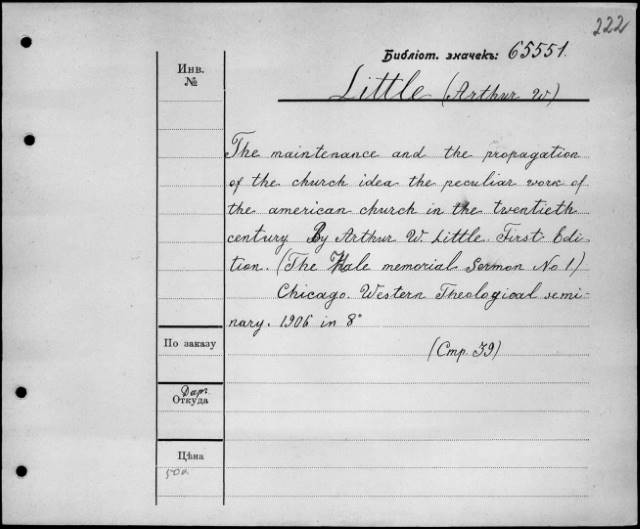 222
Библіот. значекъ: 65551.
Инв.
№
Little (Arthur W)
The maintenance and the propagation
of the church idea the peculiar work of
the american church in the twentieth
century By Arthur W. Little. First Edi-
tion. (The Hale memorial Sermon No 1)
Chicago. Western Theological semi-
nary. 1906 in 8°
(Стр. 39)
По заказу
Дар.
Откуда
Цѣна